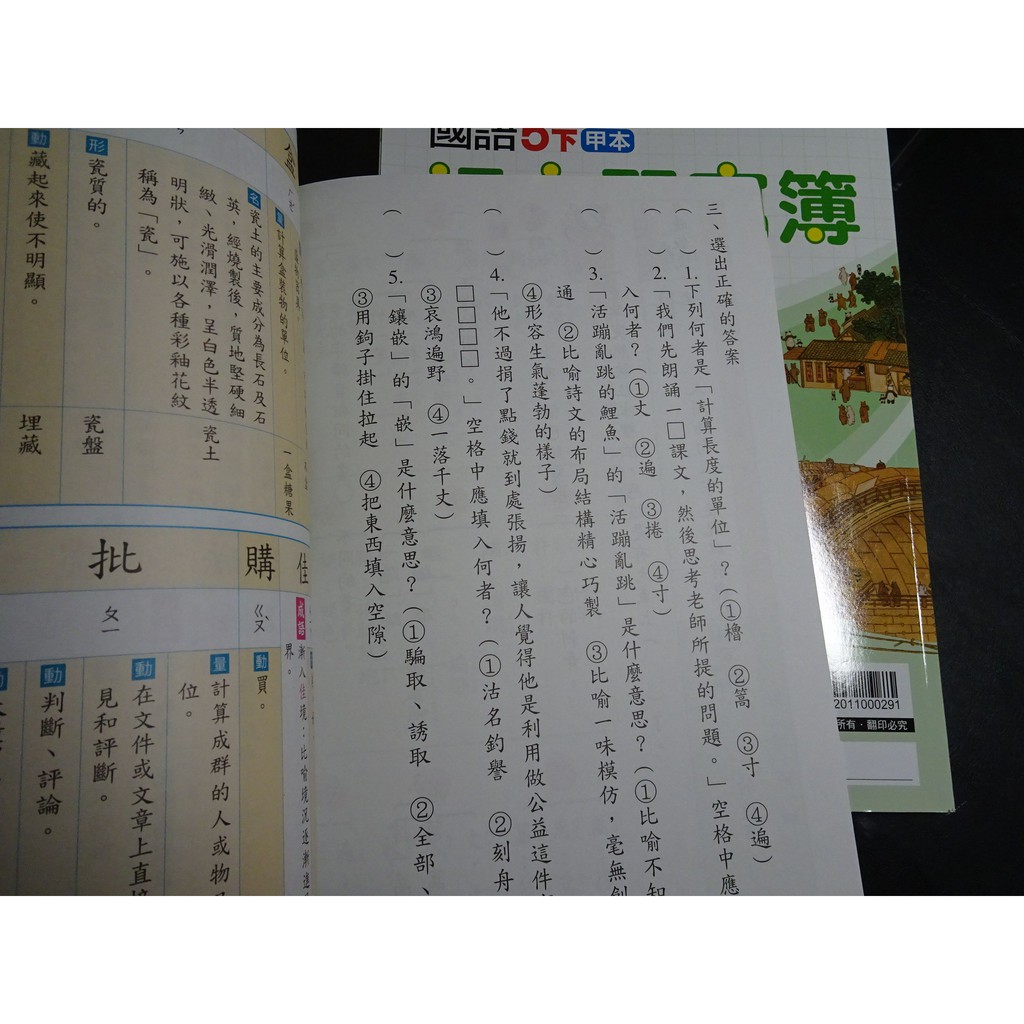 國語5下甲本
簿
2011000291
所有‧翻印必究
三、選出正確的答案
( ) 1.下列何者是「計算長度的單位」?(①櫓 ②篙 ③寸 ④遍)
( ) 2.「我們先朗誦一□課文,然後思考老師所提的問題。」空格中應
入何者?(①丈 ②遍 ③捲 ④寸)
( ) 3.「活蹦亂跳的鯉魚」的「活蹦亂跳」是什麼意思?(①比喻不知
通 ②比喻詩文的布局結構精心巧製 ③比喻一味模仿,毫無創
④形容生氣蓬勃的樣子)
( ) 4.「他不過捐了點錢就到處張揚,讓人覺得他是利用做公益這件
□□□□。」空格中應填入何者?(①沽名釣譽 ②刻舟
③哀鴻遍野 ④一落千丈)
( ) 5.「鑲嵌」的「嵌」是什麼意思?(①騙取、誘取 ②全部、
③用鉤子掛住拉起 ④把東西填入空隙)
計算盒裝物的單位。
一盒糖果
名 瓷土的主要成分為長石及石
英,經燒製後,質地堅硬細
緻、光滑潤澤,呈白色半透
明狀,可施以各種彩釉花紋
稱為「瓷」。
瓷土
形 瓷質的。
瓷盤
動 藏起來使不明顯。
埋藏
佳
成語 漸入佳境:比喻境況逐漸進
界。
購
ㄍㄡˋ
動 買。
批
ㄆㄧ
量 計算成群的人或物
位。
動 在文件或文章上直接
見和評斷。
動 判斷、評論。